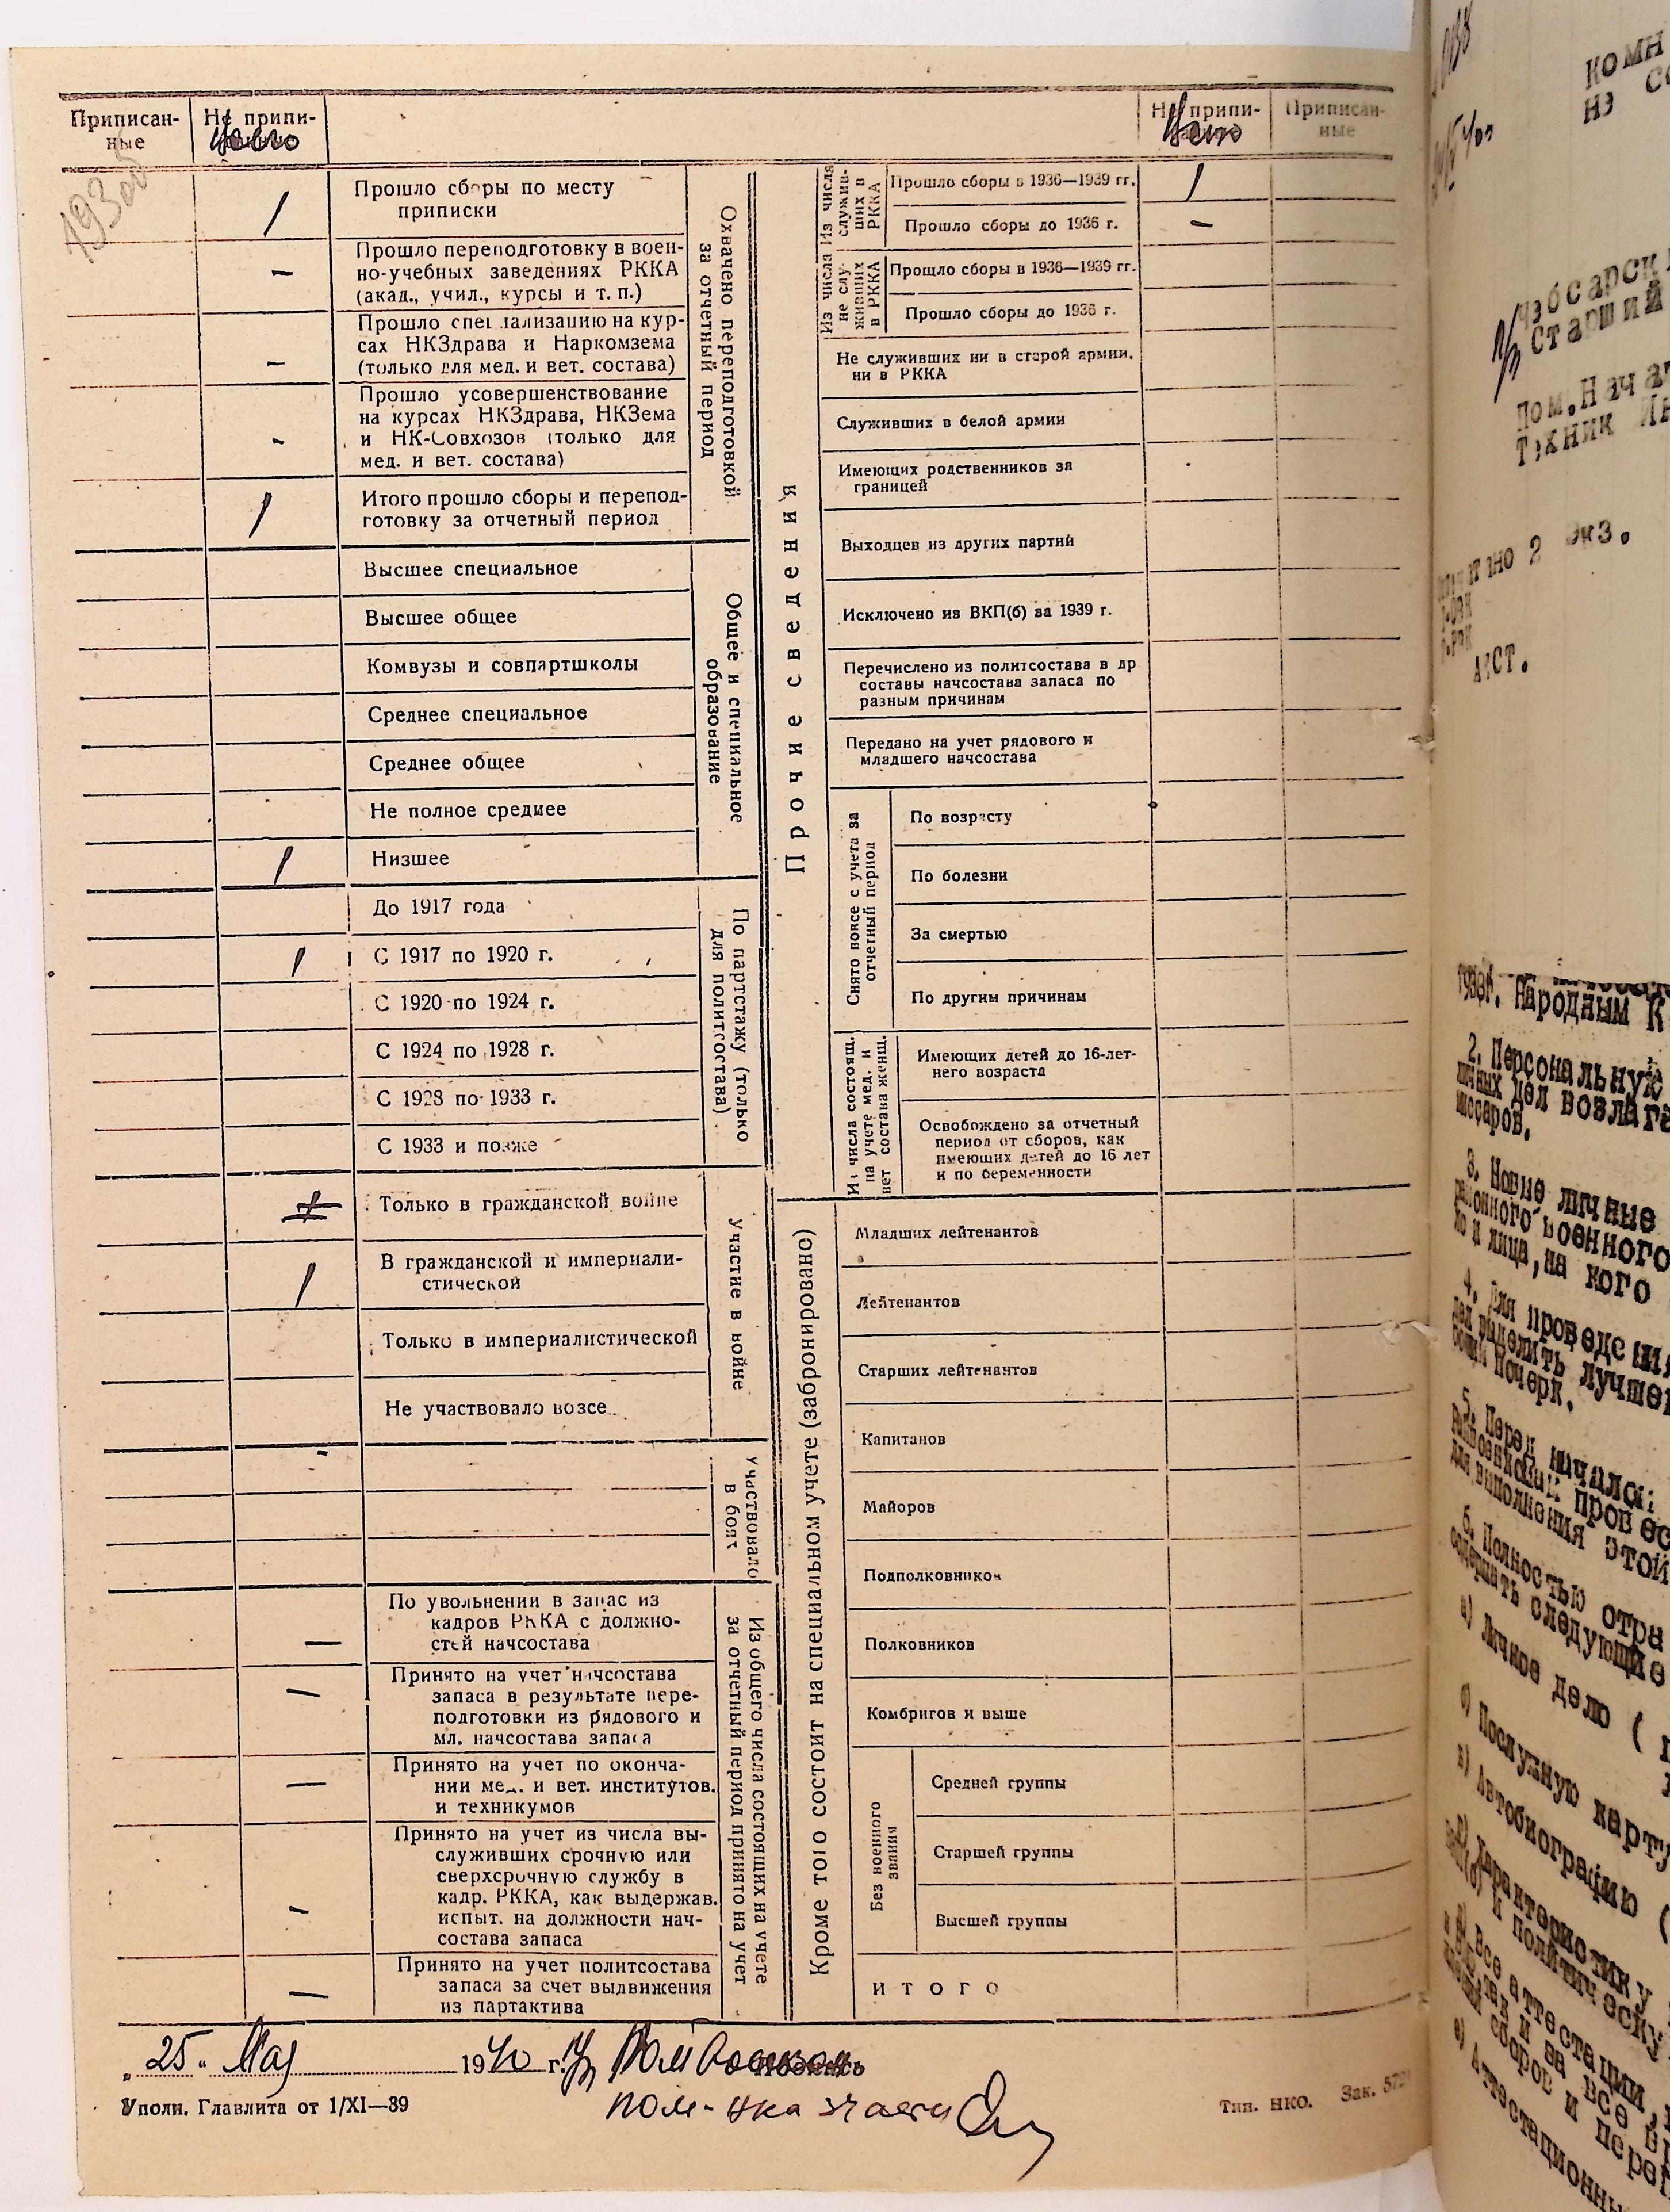 Приписан-
ные
Не припи-
Всего
Не припи-
Всего
Приписан-
ные
/ Прошло сборы по месту
приписки
— Прошло переподготовку в воен-
но-учебных заведениях РККА
(акад., учил., курсы и т. п.)
— Прошло специализацию на кур-
сах НКЗдрава и Наркомзема
(только для мед. и вет. состава)
- Прошло усовершенствование
на курсах НКЗдрава, НКЗема
и НК-Совхозов (только для
мед. и вет. состава)
/ Итого прошло сборы и перепод-
готовку за отчетный период
Охвачено переподготовкой
за отчетный период
Высшее специальное
Высшее общее
Комвузы и совпартшколы
Среднее специальное
Среднее общее
Не полное среднее
/ Низшее
Общее и специальное
образование
До 1917 года
/ С 1917 по 1920 г.
С 1920 по 1924 г.
С 1924 по 1928 г.
С 1928 по 1933 г.
С 1933 и позже
По партстажу (только
для политсостава)
Только в гражданской войне
/ В гражданской и империали-
стической
Только в империалистической
Не участвовало вовсе
Участие в войне
Участвовало
в боях
— По увольнении в запас из
кадров РККА с должно-
стей начсостава
— Принято на учет начсостава
запаса в результате пере-
подготовки из рядового и
мл. начсостава запаса
— Принято на учет по оконча-
нии мед. и вет. институтов.
и техникумов
— Принято на учет из числа вы-
служивших срочную или
сверхсрочную службу в
кадр. РККА, как выдержав.
испыт. на должности нач-
состава запаса
— Принято на учет политсостава
запаса за счет выдвижения
из партактива
Из общего числа состоящих на учете
за отчетный период принято на учет
Прочие сведения
Из числа
служив-
ших в
РККА
Прошло сборы в 1936—1939 гг. /
Прошло сборы до 1936 г. —
Из числа
не слу-
живших
в РККА
Прошло сборы в 1936—1939 гг.
Прошло сборы до 1936 г.
Не служивших ни в старой армии,
ни в РККА
Служивших в белой армии
Имеющих родственников за
границей
Выходцев из других партий
Исключено из ВКП(б) за 1939 г.
Перечислено из политсостава в др
составы начсостава запаса по
разным причинам
Передано на учет рядового и
младшего начсостава
Снято вовсе с учета за
отчетный период
По возрасту
По болезни
За смертью
По другим причинам
Из числа состоящ.
на учете мед. и
вет состава женщ.
Имеющих детей до 16-лет-
него возраста
Освобождено за отчетный
период от сборов, как
имеющих детей до 16 лет
и по беременности
Кроме того состоит на специальном учете (забронировано)
Младших лейтенантов
Лейтенантов
Старших лейтенантов
Капитанов
Майоров
Подполковников
Полковников
Комбригов и выше
Без военного
звания
Средней группы
Старшей группы
Высшей группы
ИТОГО
„25“ Мая 1940 г.
Пом-нка 3 части
Уполн. Главлита от 1/XI—39
Тип. НКО. Зак.
Старший
Пом.Нача
Техник Ин
2 экз.
1938г. Народным К
2. Персональную
личных дел возлага
3. Новые личные
районного военного
но и лица, на кого
4. Для проведени
дел выделить лучше
почерк.
5. Перед начало
для выполнения этой
6. Полностью отра
содержать следующие
а) Личное дело (
б) Послужную карту
в) Автобиографию (
г) Характеристику
и политическу
д) Все аттестации,
сборов и пере
е) Аттестационны